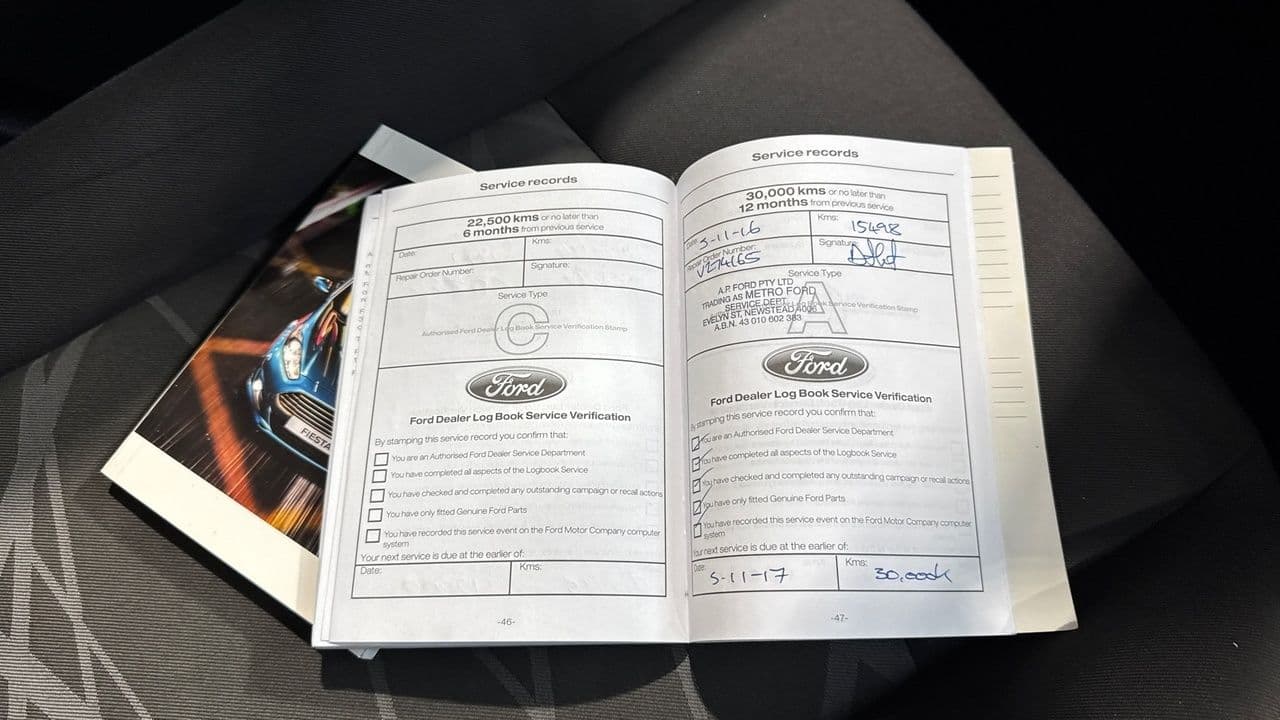 Service records
22,500 kms or no later than
6 months from previous service
Date:
Kms:
Repair Order Number:
Signature:
Service Type
C
Authorised Ford Dealer Log Book Service Verification Stamp
Ford
Ford Dealer Log Book Service Verification
By stamping this service record you confirm that:
You are an Authorised Ford Dealer Service Department
You have completed all aspects of the Logbook Service
You have checked and completed any outstanding campaign or recall actions
You have only fitted Genuine Ford Parts
You have recorded this service event on the Ford Motor Company computer
system
Your next service is due at the earlier of:
Date:
Kms:
-46-
Service records
30,000 kms or no later than
12 months from previous service
Date: 5-11-16
Kms: 15498
Repair Order Number:
Signature:
Service Type
A
A.P. FORD PTY LTD
TRADING AS METRO FORD
SERVICE DEPT.
EVELYN ST, NEWSTEAD 4006
A.B.N. 43 010 602 383
Log Book Service Verification Stamp
Ford
Ford Dealer Log Book Service Verification
By stamping this service record you confirm that:
You are an Authorised Ford Dealer Service Department
You have completed all aspects of the Logbook Service
You have checked and completed any outstanding campaign or recall actions
You have only fitted Genuine Ford Parts
You have recorded this service event on the Ford Motor Company computer
system
Your next service is due at the earlier of:
Date: 5-11-17
Kms: 30,000k
-47-
FIESTA